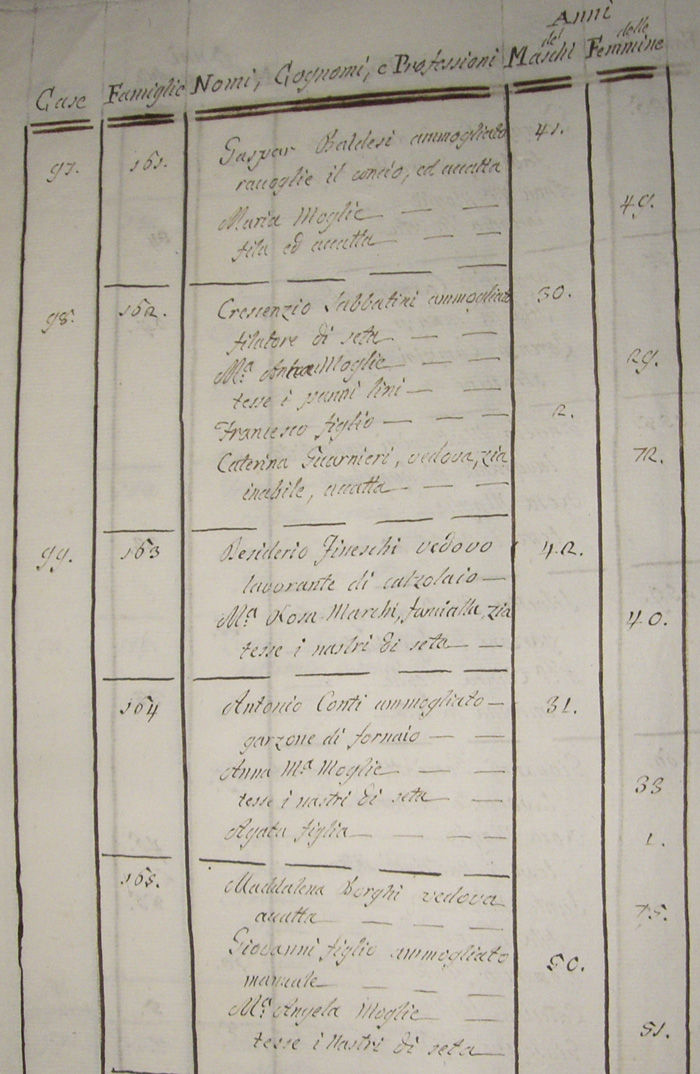 Anni
Case Famiglie Nomi, Cognomi, e Professioni del Maschi delle Femmine
97. 161. Gaspar Baldesi ammogliato 41.
raccoglie il concio, ed accatta
Maria Moglie 49.
fila ed accatta
98. 162. Cressenzio Sabbatini ammogliato 30.
filatore di seta
Mª Anna Moglie 29.
tesse i panni lini
Francesco figlio 2.
Caterina Guarnieri, vedova, zia 72.
inabile, accatta
99. 163 Desiderio Fineschi vedovo 42.
lavorante di calzolaio
Mª Rosa Marchi, fanciulla, zia 40.
tesse i nastri di seta
164 Antonio Conti ammogliato 31.
garzone di fornaio
Anna Mª Moglie
tesse i nastri di seta 33
Agata figlia 1.
165. Maddalena Borghi vedova
accatta 75.
Giovanni figlio ammogliato 50.
manuale
Mª Angela Moglie
tesse i Nastri di seta 51.